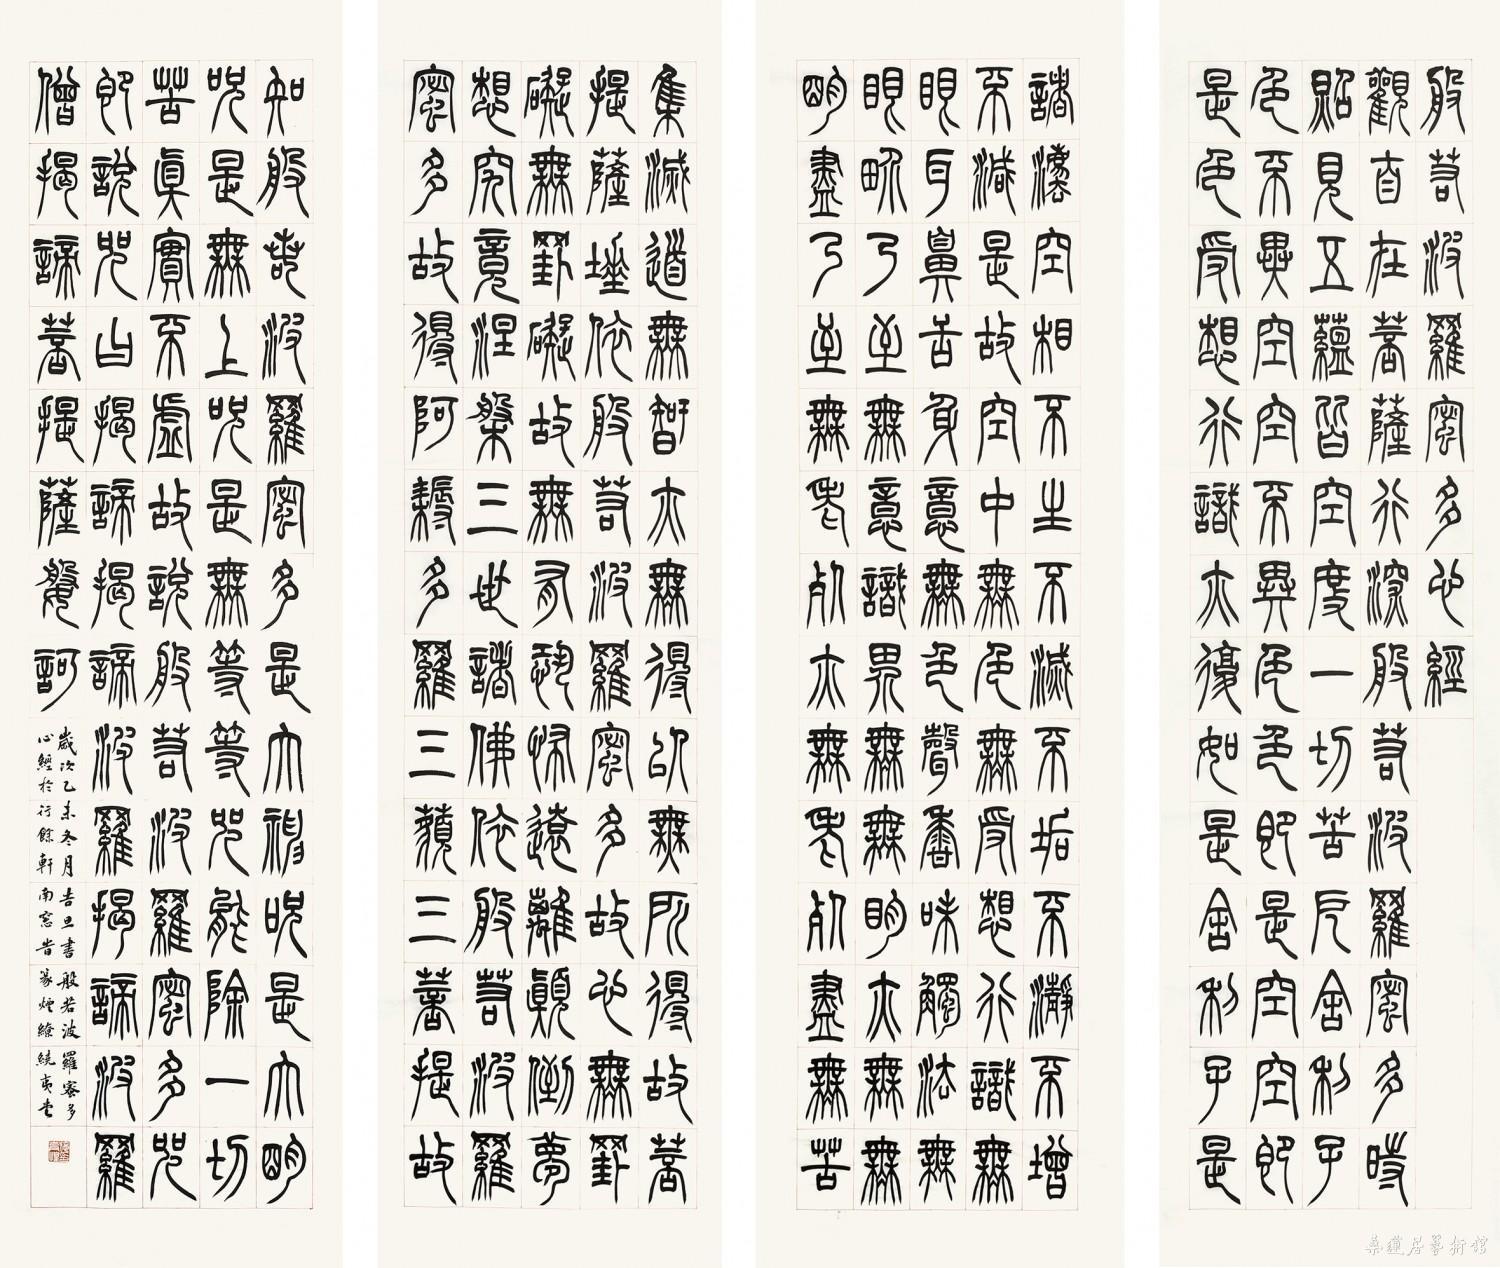 般若波羅密多心經
觀自在菩薩行深般若波羅密多時
照見五蘊皆空度一切苦厄舍利子
色不異空空不異色色即是空空即
是色受想行識亦復如是舍利子是
諸法空相不生不滅不垢不瀞不增
不減是故空中無色無受想行識無
眼耳鼻舌身意無色聲香味觸法無
眼界乃至無意識界無無明亦無無
明盡乃至無老死亦無老死盡無苦
集滅道無智亦無得以無所得故菩
提薩埵依般若波羅密多故心無罣
礙無罣礙故無有恐怖遠離顛倒夢
想究竟涅槃三世諸佛依般若波羅
密多故得阿耨多羅三藐三菩提故
知般若波羅密多是大神咒是大明
咒是無上咒是無等等咒能除一切
苦真實不虛故說般若波羅密多咒
即說咒曰揭諦揭諦波羅揭諦波羅
僧揭諦菩提薩婆訶
歲次乙未冬月吉旦書般若波羅蜜多
心經於行餘軒南窓旹篆煙繚繞
桑蓮居藝術館